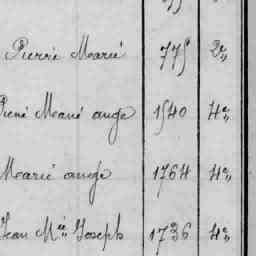 Pierre Marie 775 2e
René Mané ange 1540 4e
Marie ange 1764 4e
Jean Mie Joseph 1736 4e